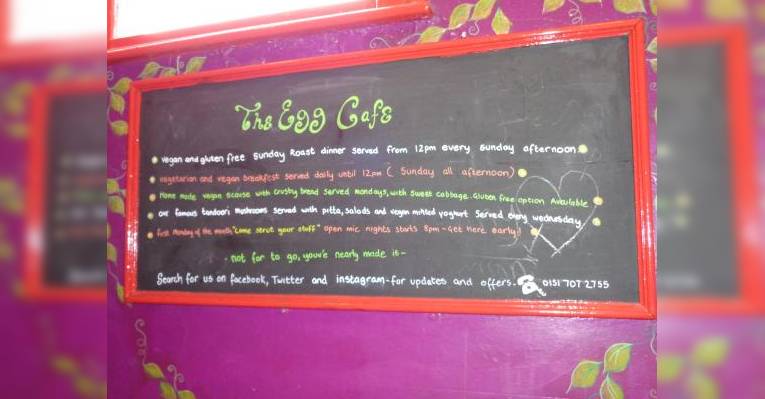 The Egg Cafe
vegan and gluten free Sunday Roast dinner served from 12pm every sunday afternoon
vegetarian and vegan breakfast served daily until 12pm ( Sunday all afternoon)
Home made vegan scouse with crusty bread served mondays, with sweet cabbage. Gluten free option Available
our famous tandoori mushrooms served with pitta, salads and vegan minted yoghurt served every wednesday
first Monday of the month "come strut your stuff" open mic nights starts 8pm - Get here early!!
- not far to go, youv'e nearly made it -
Search for us on facebook, Twitter and instagram - for updates and offers. 0151 707 2755